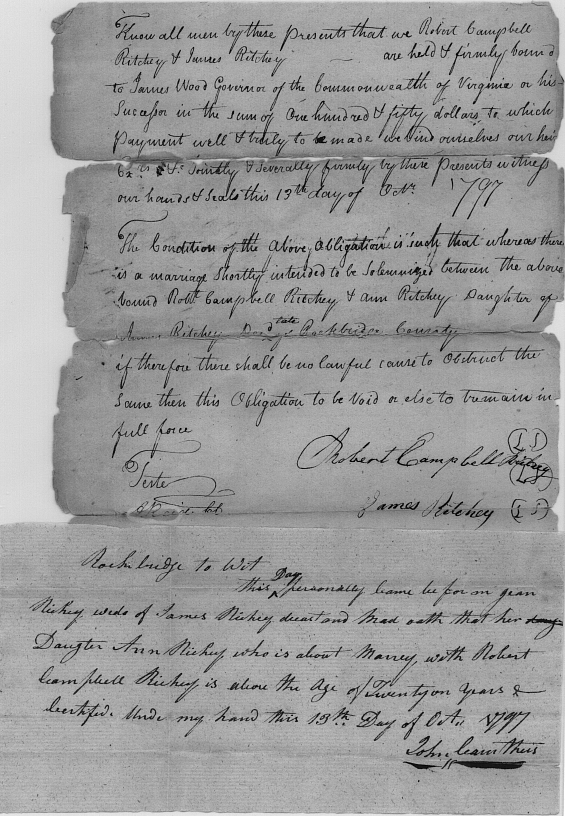 Know all men by these Presents that we Robert Campbell
Ritchey & James Ritchey — are held & firmly bound
to James Wood Governor of the Commonwealth of Virginia or his
Successor in the sum of One hundred & fifty dollars to which
Payment well & truly to be made we bind ourselves our heirs
Exrs &c Jointly & Severally firmly by these Presents witness
our hands & Seals this 13th day of Octr 1797
The Condition of the above Obligation is such that whereas there
is a marriage Shortly intended to be Solemnized between the above
bound Robt Campbell Ritchey & Ann Ritchey Daughter of
Ritchey Decd late of Rockbridge County
if therefore there shall be no lawful cause to Obstruct the
Same then this Obligation to be Void or else to remain in
full force
Robert Campbell Richey (LS)
Teste
James Ritchey (LS)
Rockbridge to Wit
this Day personally Came be for m Jean
Richey wido of James Richey decest and mad oath that her
Daugter Ann Richey who is about Marrey with Robert
Campbell Richey is above the Age of Twenty on Years &
Certifid. Unde my hand this 13th Day of Octr 1797
John Caruthers